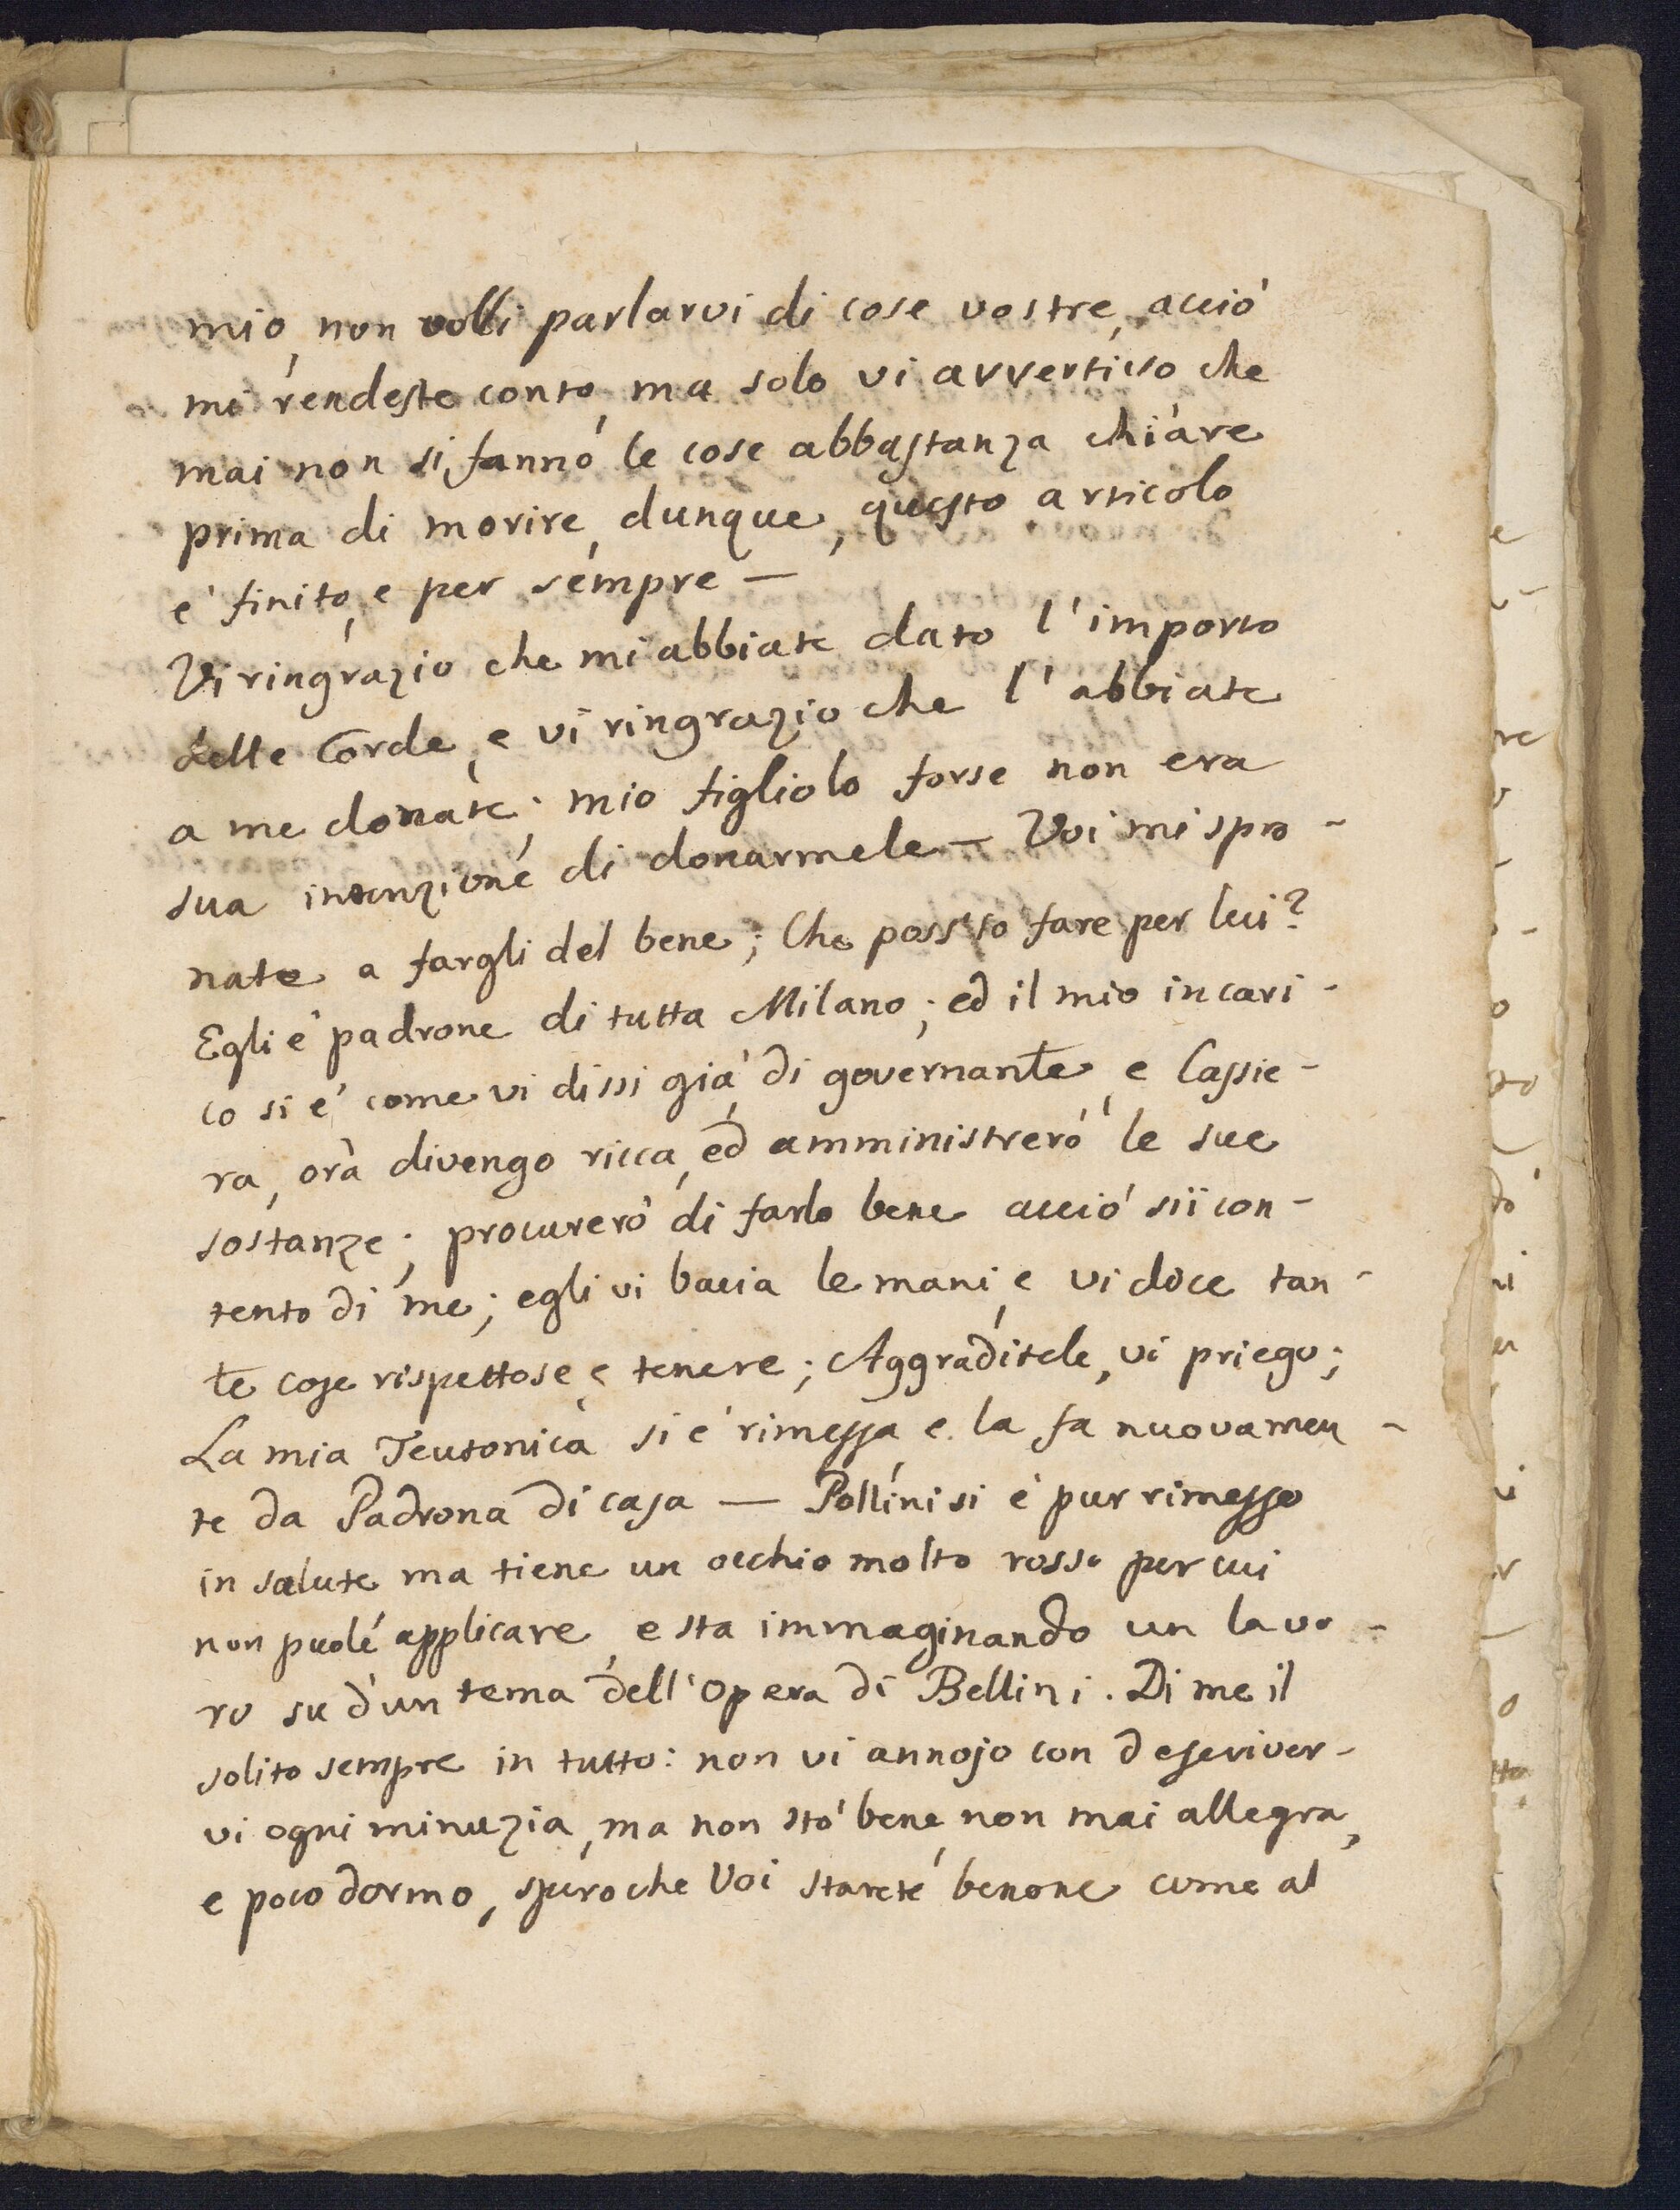 mio, non volli parlarvi di cose vostre, acciò
mi rendeste conto, ma solo vi avvertivo che
mai non si fanno le cose abbastanza chiare
prima di morire, dunque, questo articolo
e' finito, e per sempre —
Vi ringrazio che mi abbiate dato l'importo
delle Corde, e vi ringrazio che l'abbiate
a me donate; mio figliolo forse non era
sua intenzione di donarmele — Voi mi spro-
nate a fargli del bene; Che poss'io fare per lui?
Egli e' padrone di tutta Milano; ed il mio incari-
co si e' come vi dissi già di governante, e Cassie-
ra, ora divengo ricca, ed amministrerò le sue
sostanze; procurerò di farlo bene acciò sii con-
tento di me; egli vi bacia le mani, e vi dice tan-
te cose rispettose, e tenere; Aggraditele, vi priego;
La mia Teutonica si e' rimessa, e la fa nuovamen-
te da Padrona di casa — Pollini si e' pur rimesso
in salute ma tiene un occhio molto rosso per cui
non puole' applicare, e sta immaginando un lavo-
ro su d'un tema dell'Opera di Bellini. Di me il
solito sempre in tutto: non vi annojo con descriver-
vi ogni minuzia, ma non stò bene, non mai allegra,
e poco dormo, spero che Voi starete benone come al